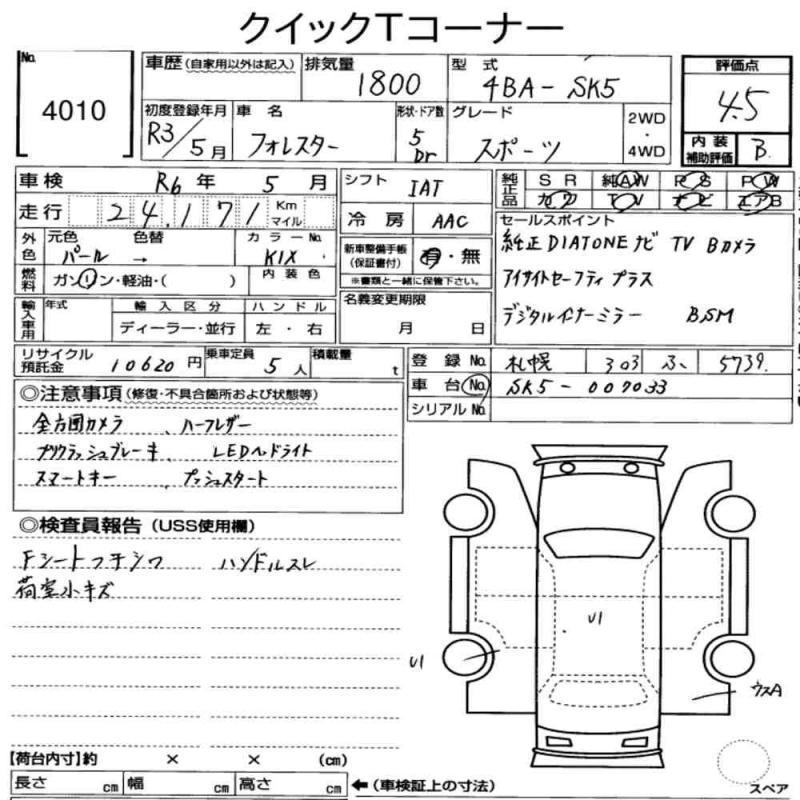 クイックTコーナー
No. 4010
車歴 (自家用以外は記入) 排気量 1800 型式 4BA-SK5 評価点 4.5
初度登録年月 R3/5月 車名 フォレスター 形状・ドア数 5 Dr グレード スポーツ 2WD・4WD 内装補助評価 B
車検 R6年 5月 シフト IAT 純正品 SR 純AW PS PW
走行 24,171 Km マイル 冷房 AAC カワ TV ナビ エアB
外色 元色 パール 色替 → カラーNo. K1X 新車整備手帳(保証書付) 有・無 セールスポイント
燃料 ガソリン・軽油・( ) 内装色 ※書類と一緒に保管下さい。 純正DIATONEナビ TV Bカメラ
輸入車用 年式 輸入区分 ハンドル 名義変更期限 アイサイトセーフティプラス
ディーラー・並行 左・右 月 日 デジタルインナーミラー BSM
リサイクル預託金 10620円 乗車定員 5人 積載量 t 登録No. 札幌 303 ふ 5739
車台No. SK5-007033
シリアルNo.
◎注意事項 (修復・不具合箇所および状態等)
全方囲カメラ、ハーフレザー
プリクラッシュブレーキ、LEDヘッドライト
スマートキー、プッシュスタート
◎検査員報告 (USS使用欄)
Fシートフチシワ ハンドルスレ
荷室小キズ
U1
U1
ウスA
【荷台内寸】約 × × (cm)
長さ cm 幅 cm 高さ cm ←(車検証上の寸法)
スペア